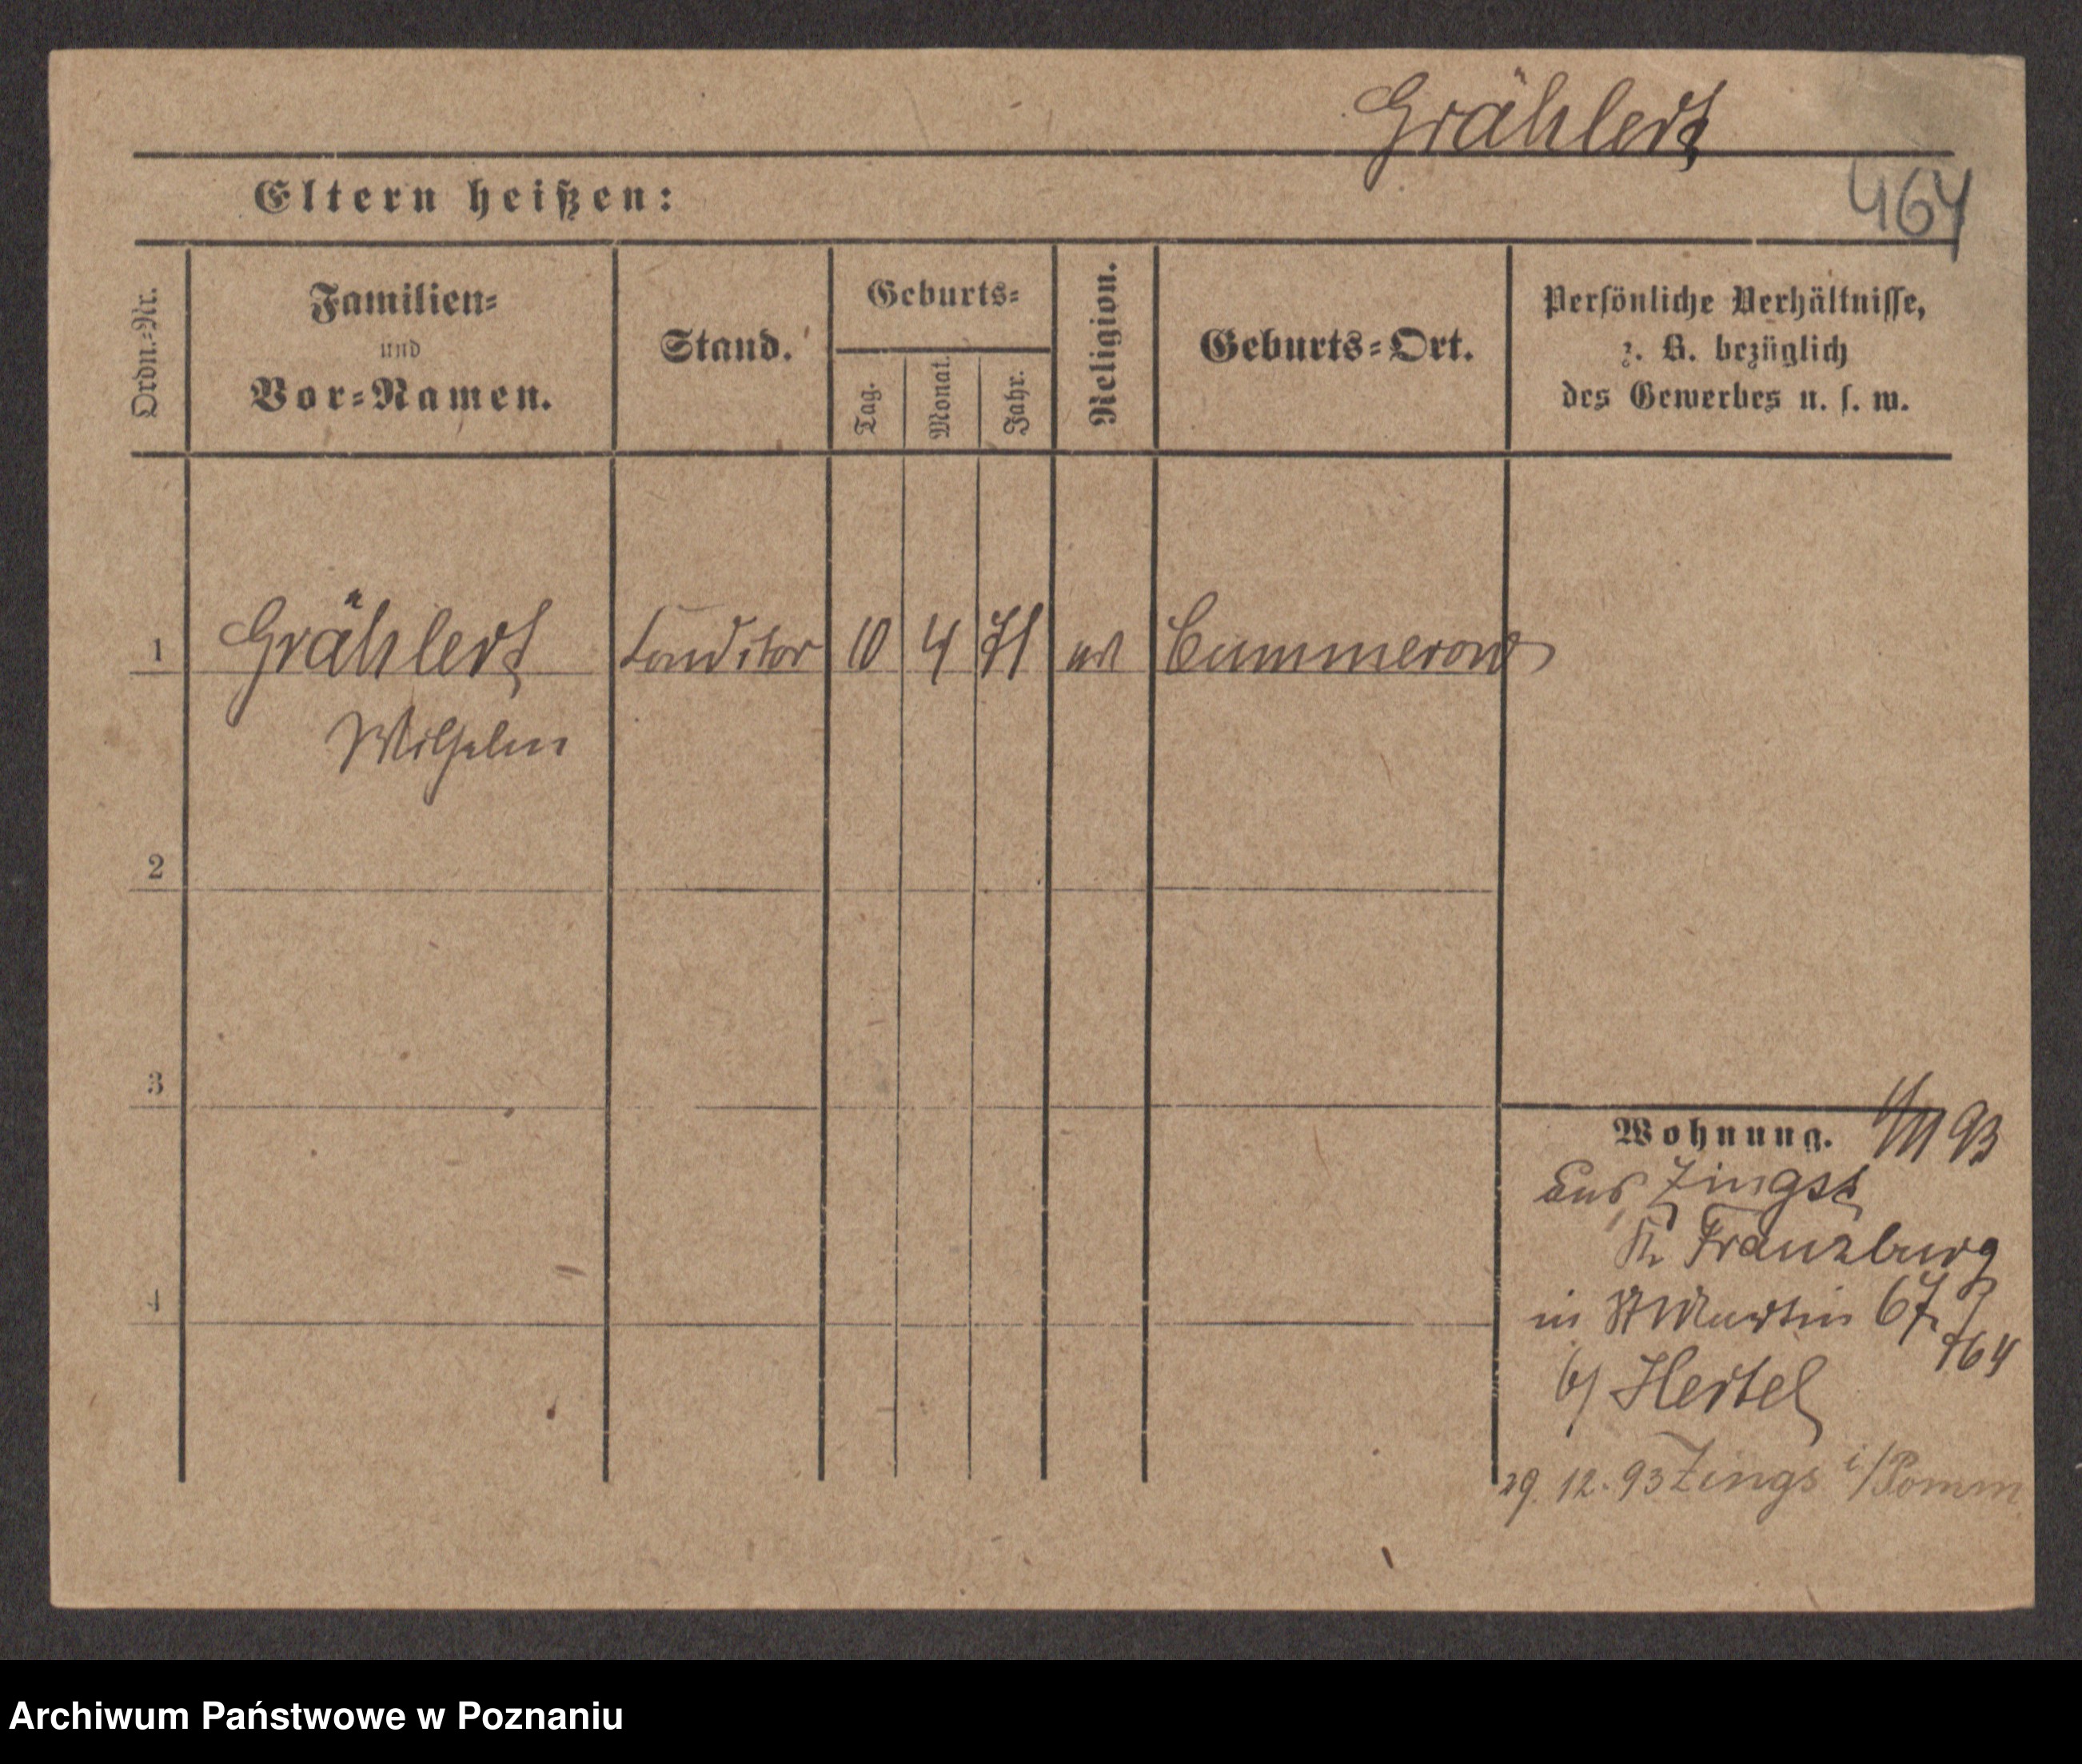 Grählert
464
Eltern heißen:
Ordn.=Nr.
Familien=
und
Vor=Namen.
Stand.
Geburts=
Tag.
Monat.
Jahr.
Religion.
Geburts=Ort.
Persönliche Verhältnisse,
z. B. bezüglich
des Gewerbes u. s. w.
1 Grählert Conditor 10 4 71 Cummerow
Wilhelm
2
3
4
Wohnung. 93
aus Zingst
Kr Franzburg
in St Martin 67.
b/ Hertel
29. 12. 93 Zings i/Pomm
Archiwum Państwowe w Poznaniu